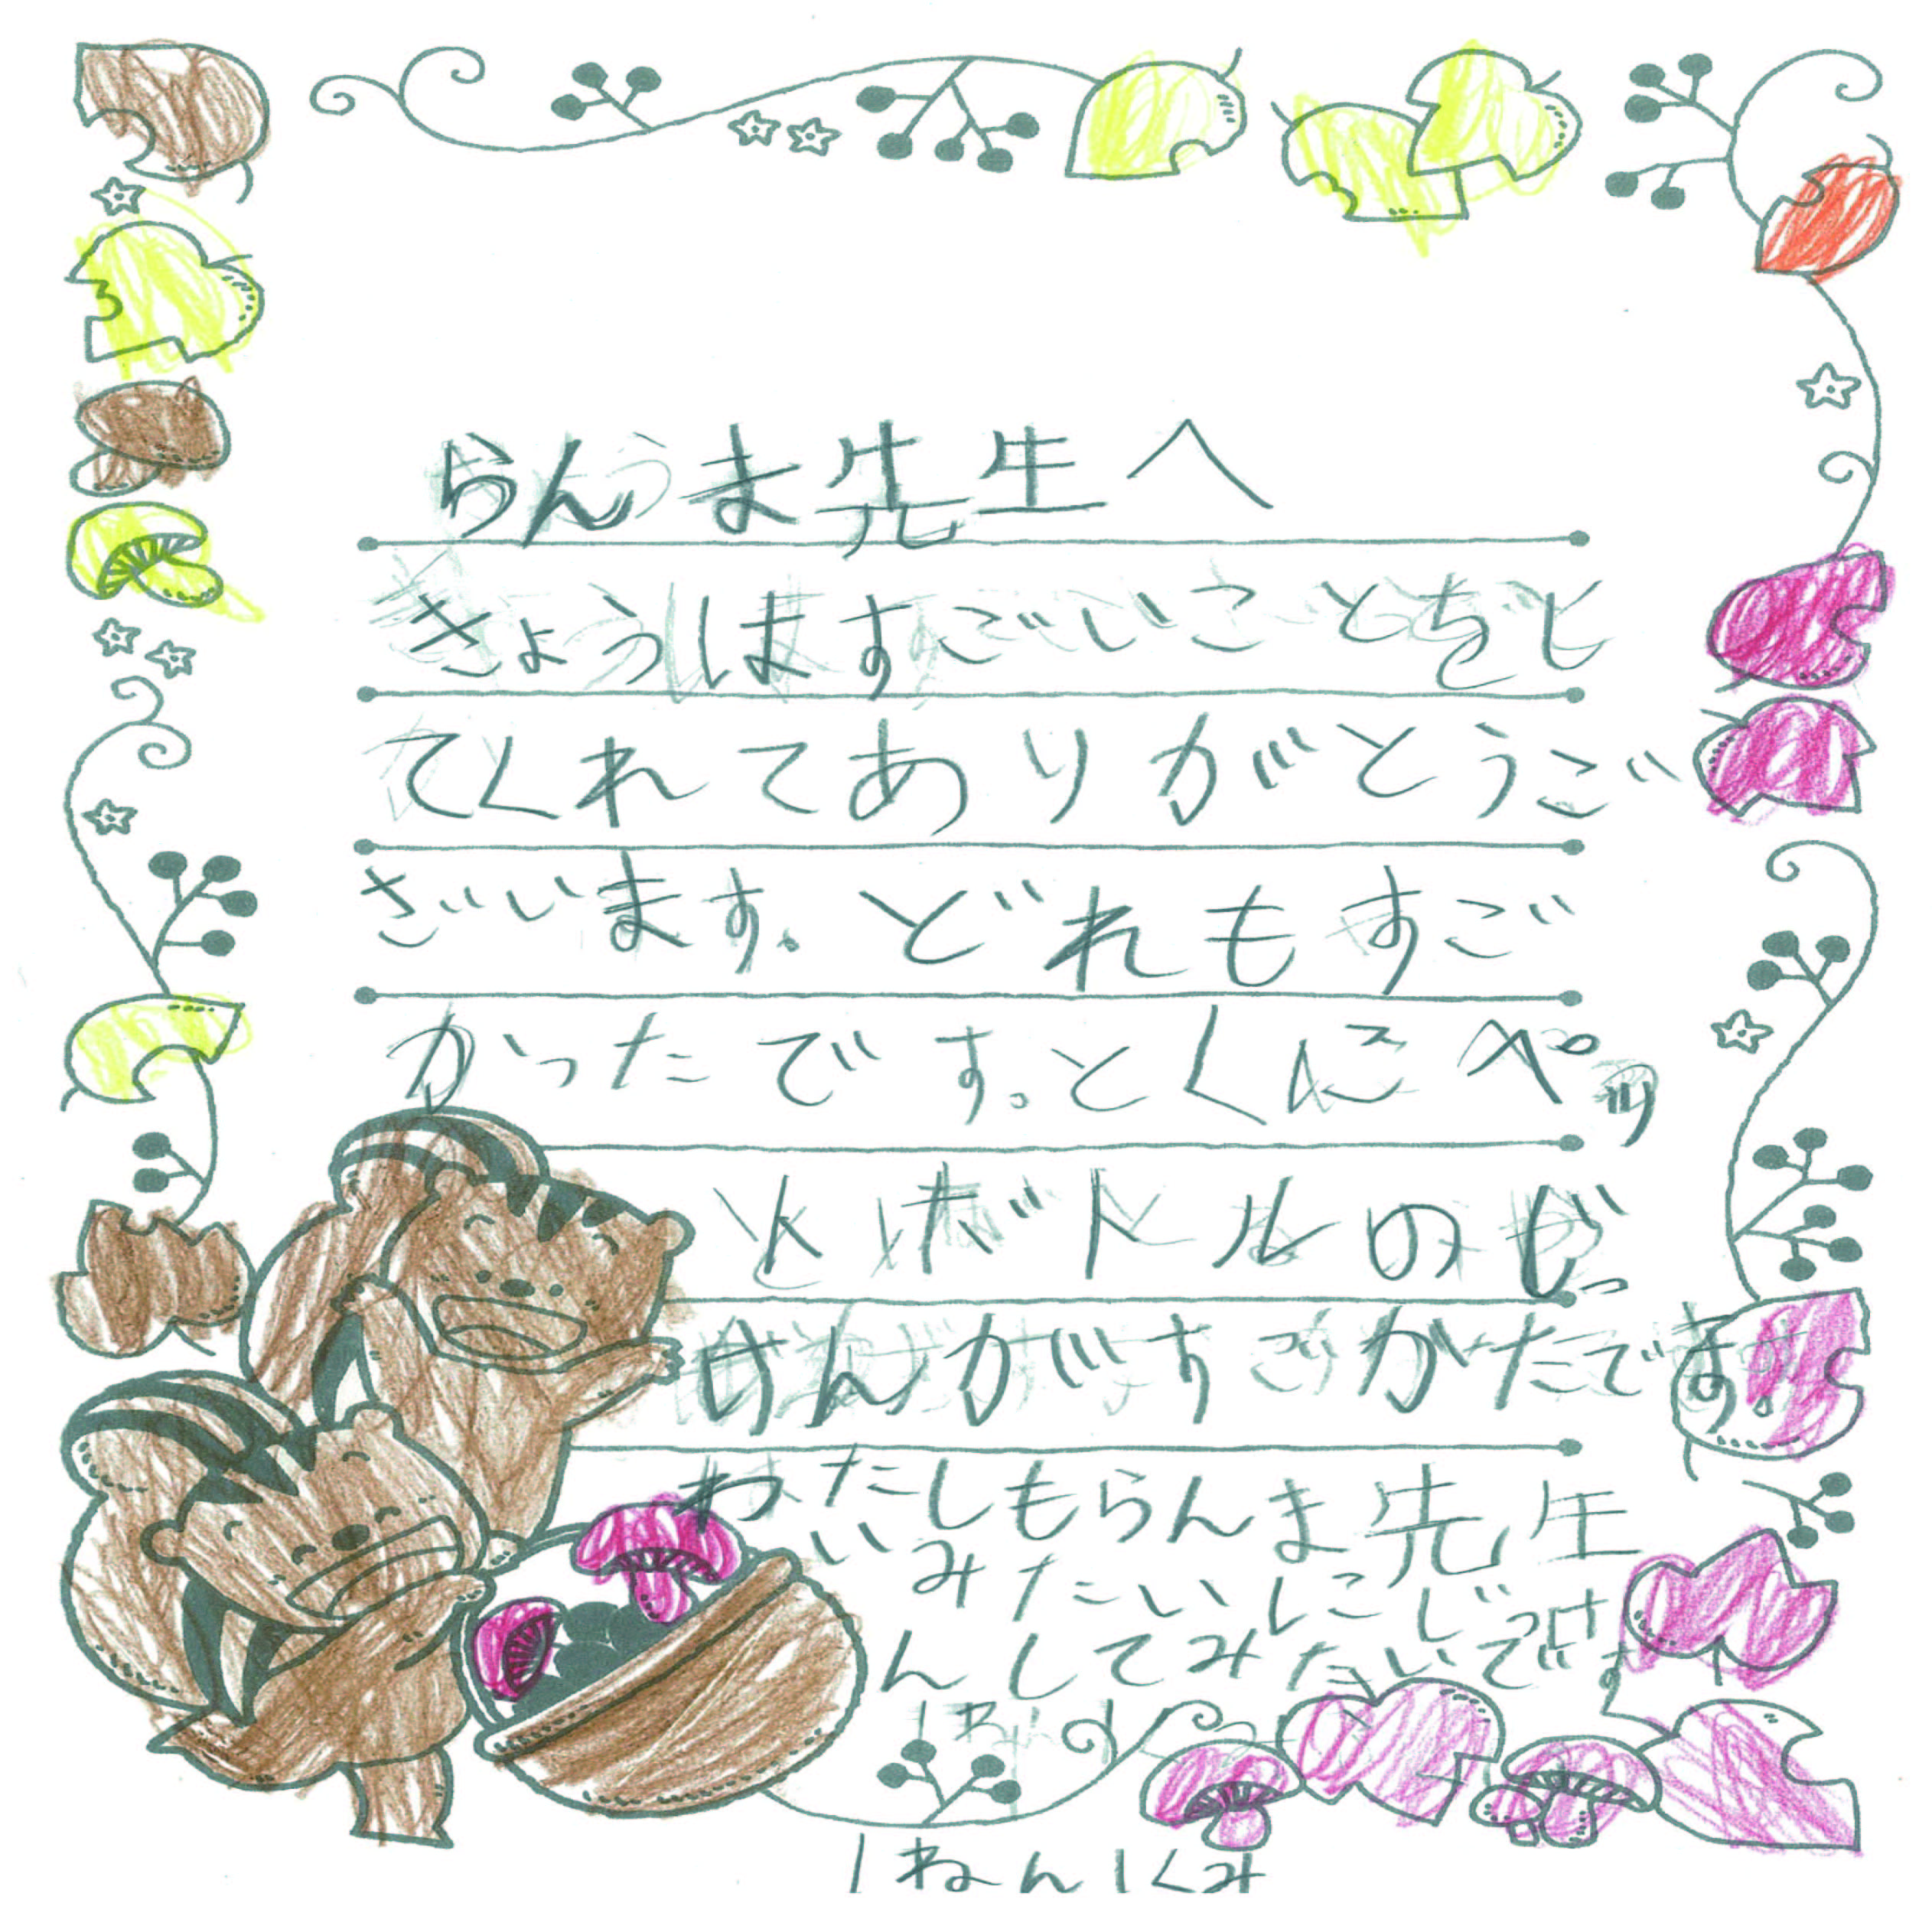 らんま先生へ
きょうはすごいいことをし
てくれてありがとうご
ざいます。どれもすご
かったです。とくにペッ
トボトルのじっ
けんがすごかたです。
わたしもらんま先生
みたいにじっけ
んしてみたいです
1ねん1くみ